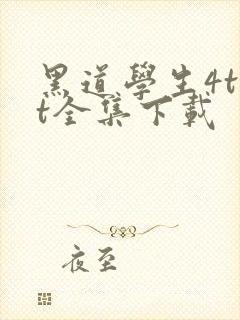 黑道學生4t
t全集下載
夜至